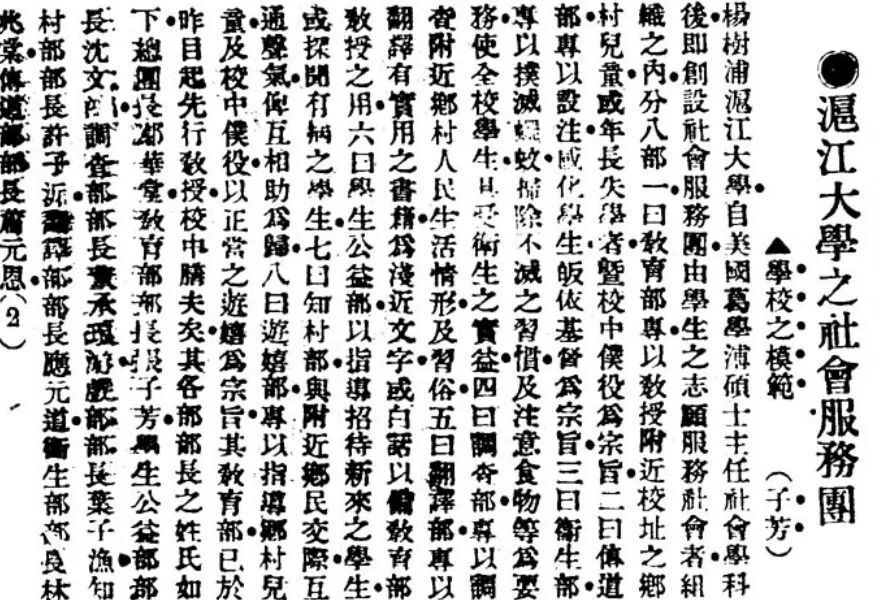 ●滬江大學之社會服務團
▲學校之模範 (子芳)
楊樹浦滬江大學自美國葛學溥碩士主任社會學科
後即創設社會服務團由學生之志願服務社會者組
織之內分八部一曰敎育部專以敎授附近校址之鄉
村兒童或年長失學者暨校中僕役爲宗旨二曰傳道
部專以設法感化學生皈依基督爲宗旨三曰衛生部
專以撲滅蠅蚊掃除不滅之習慣及注意食物等爲要
務使全校學生具受衛生之實益四曰調查部專以調
查附近鄉村人民生活情形及習俗五曰翻譯部專以
翻譯有實用之書籍爲淺近文字或白話以備敎育部
敎授之用六曰學生公益部以指導招待新來之學生
或探閱有病之學生七曰知村部與附近鄉民交際互
通聲氣俾互相助爲歸八曰遊嬉部專以指導鄉村兒
童及校中僕役以正當之遊嬉爲宗旨其敎育部已於
昨日起先行敎授校中膳夫矣其各部部長之姓氏如
下總團長 華堂敎育部部長張子芳學生公益部部
長沈文 調查部部長 承 游戲部部長葉子漁知
村部部長許子沂翻譯部部長應元道衛生部部長林
兆棠傳道部部長 元恩(2)